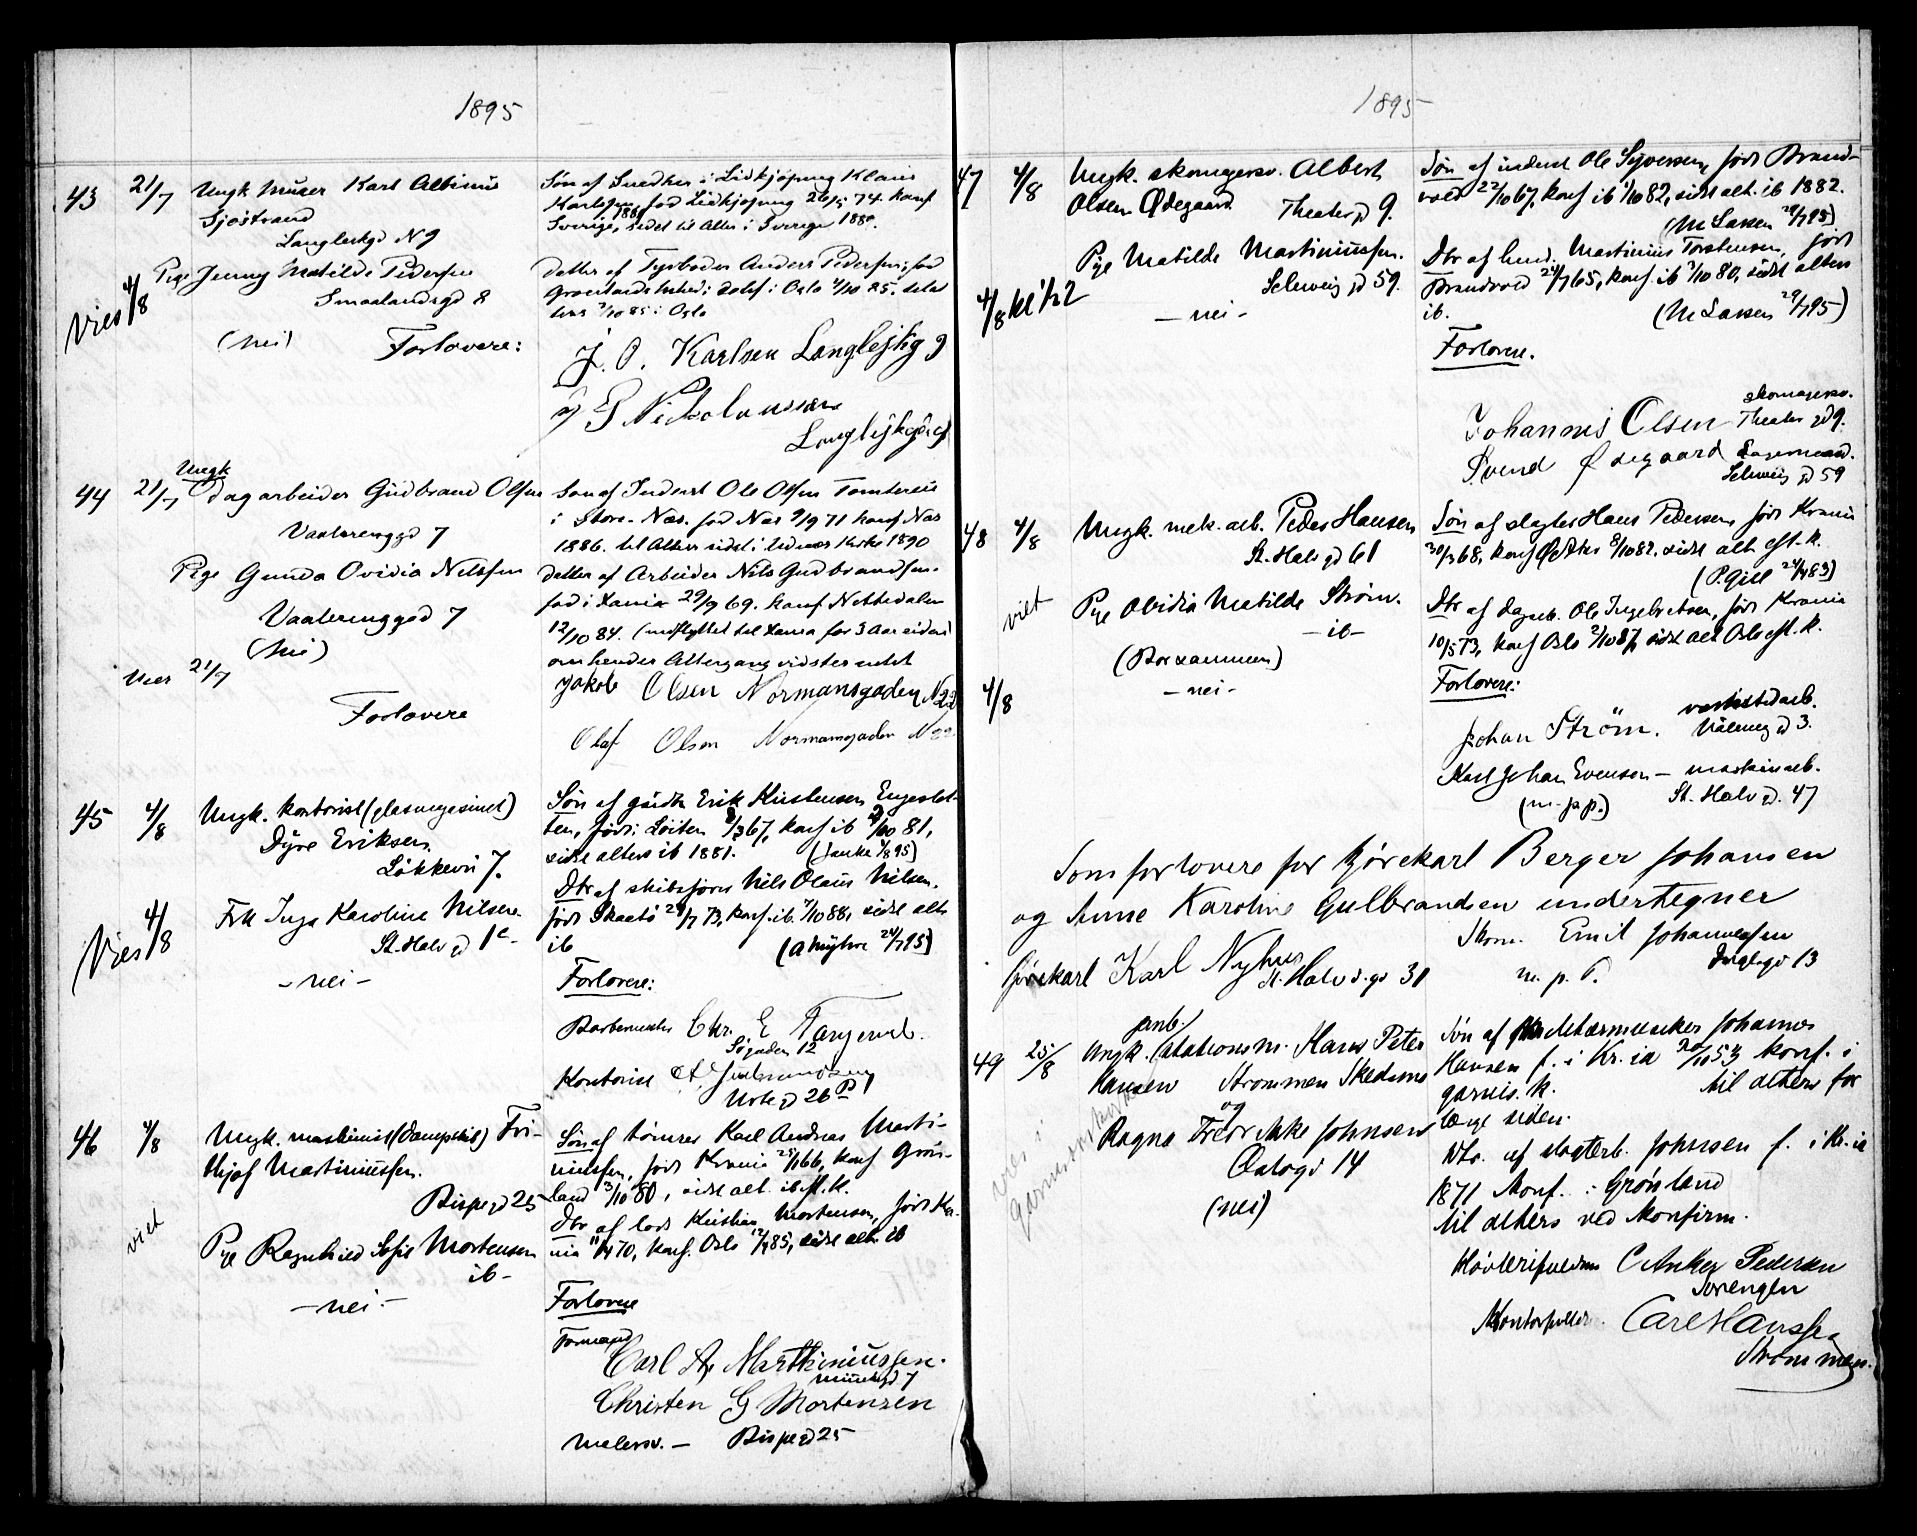 1895
43 21/7 Ungk Murer Karl Albinus
Sjøstrand
Langleikgd N 9
Søn af Snedker i Lidkjøping Klaus
Karlsen, fød Lidkjøping 26/5 74. konf
Sverige, sidst til Alters i Sverige
Pige Jenny Matilde Pedersen
Smaalandsgd 8
Datter af Anders Pedersen, fød
i Oslo 4/10 85.
7/10 85 i Oslo
Vies 4/8
(nei) Forlovere:
J. O. Karlsen Langlejkg 9
Nickolaussen
44 21/7 Ungk
Dagarbeider Gudbrand Olsen
Vaalerenggd 7
Søn af Inderst Ole Olsen Tomtereie
i Store. Næs. fød Næs 9/9 71 konf Næs
1886. til Alters sidst i Udnæs Kirke 1890
Pige Gunda Ovidia Nilssen
Vaalerenggad 7
(Nei)
Datter af Arbeider Nils Gudbrandsen.
fød i Xania 29/9 69. konf Nittedalen
12/10 84. (indflyttet til Xania for 3 Aar siden)
om hendes Altergang vidstes intet
Vies 21/7
Forlovere
Jakob Olsen Normansgaden N 22
Olaf Olsen Normansgaden N 22
45 4/8 Ungk. kontorist (glasmagasinet)
Dyre Eriksen.
Løkkevn 7.
Søn af gårdbr Erik Kristensen Engeslet-
ten, født i Løiten 8/3 67, konf ib 81,
sidst alters ib 1881. (Janke 1/8 95)
Frk Inga Karoline Nilsen
St. Halv gd 1c
Dtr af skibsfører Nils Olaus Nilsen.
født Skaatø 29/7 73, konf. ib. 7/10 88, sidst alt.
ib (A Myhre 24/7 95)
Vies 4/8
- nei -
Forlovere:
Barbermester Chr. E Tangerud.
Søgaden 12
Kontorist
Urtegd 26 P
46 4/8 Ungk. maskinist (dampskib) Fri-
thjof Martiniussen.
Bispegd 25
Søn af tømrer Karl Andreas Marti-
niussen, født Krania 25/1 66, konf Grøn-
land 3/10 80, sidst alt. ib eft. k.
viet
Pge Ragnhild Sofie Mortensen
ib -
Dtr af lods Kristian Mortensen, født Kra-
nia 11/4 70, konf. Oslo 12/4 85, sidst alt. ib
- nei. -
Forlovere
Formand
Carl A. Marthiniussen.
Christen G Mortensen
malersv. - Bispegd 25
1895
47 4/8 Ungk. skomagersv. Albert
Olsen Ødegaard. Theatergd 9.
Søn af inderst Ole Syversen, født Brand-
vold 22/10 67, konf ib 1/10 82, sidst alt. ib 1882.
(M Lassen 29/7 95)
Pge Matilde Martiniussen.
Schweigd 59.
Dtr af husm. Martinius Torstensen, født
Brandvold 24/7 65, konf. ib 3/10 80, sidst alters
ib. (M Lassen 29/7 95)
4/8 kl 1/2 2
- nei -
Forlovere.
Johannes Olsen skomagersv.
Theater gd 9.
Svend Ødegaard Lagermand.
Schweig gd 59
48 4/8 Ungk. mek. arb. Peder Hansen
St. Halv gd 61
Søn af slagter Hans Pedersen, født Krania
30/3 68, konf Ø. Aker 8/10 82, sidst alt. eft. k.
viet Pge Ovidia Matilde Strøm.
- ib -
(Bor sammen)
Dtr af dagarb. Ole Ingebretsen, født Krania
10/5 73, konf Oslo 2/10 87, sidst alt Oslo eft. k.
4/8
- nei -
Forlovere:
Johan Strøm. verkstedarb.
3.
Karl Johan Evensen - maskinarb.
(m. p. p.) St. Halv gd. 47
Som forlovere for kjørekarl Berger Johansen
og Anne Karoline Gulbrandsen undertegner
kjørekarl Karl Nyhus
St. Halvd. gd 31
Skom. Emil Johannessen
m. p. P. 13
49 25/8 Ungk. jernb. stationsm. Hans Peter
Hansen Strømmen Skedsmo
Søn af Metærmester Johannes
Hansen f. i Kr.ia 53 konf. i
garnis. k. til alters for
længe siden.
og
Ragna Fredrikke Johnsen
Oslogd 14
(nei)
Dtr. af slagterb. Johnsen f. i Kr.ia
1871 Konf. i Grønland
til alters ved konfirm.
vies i
Garnisonskirken
C Anker Pedersen
Sørengen
Carl Hanssen
Strømmen.